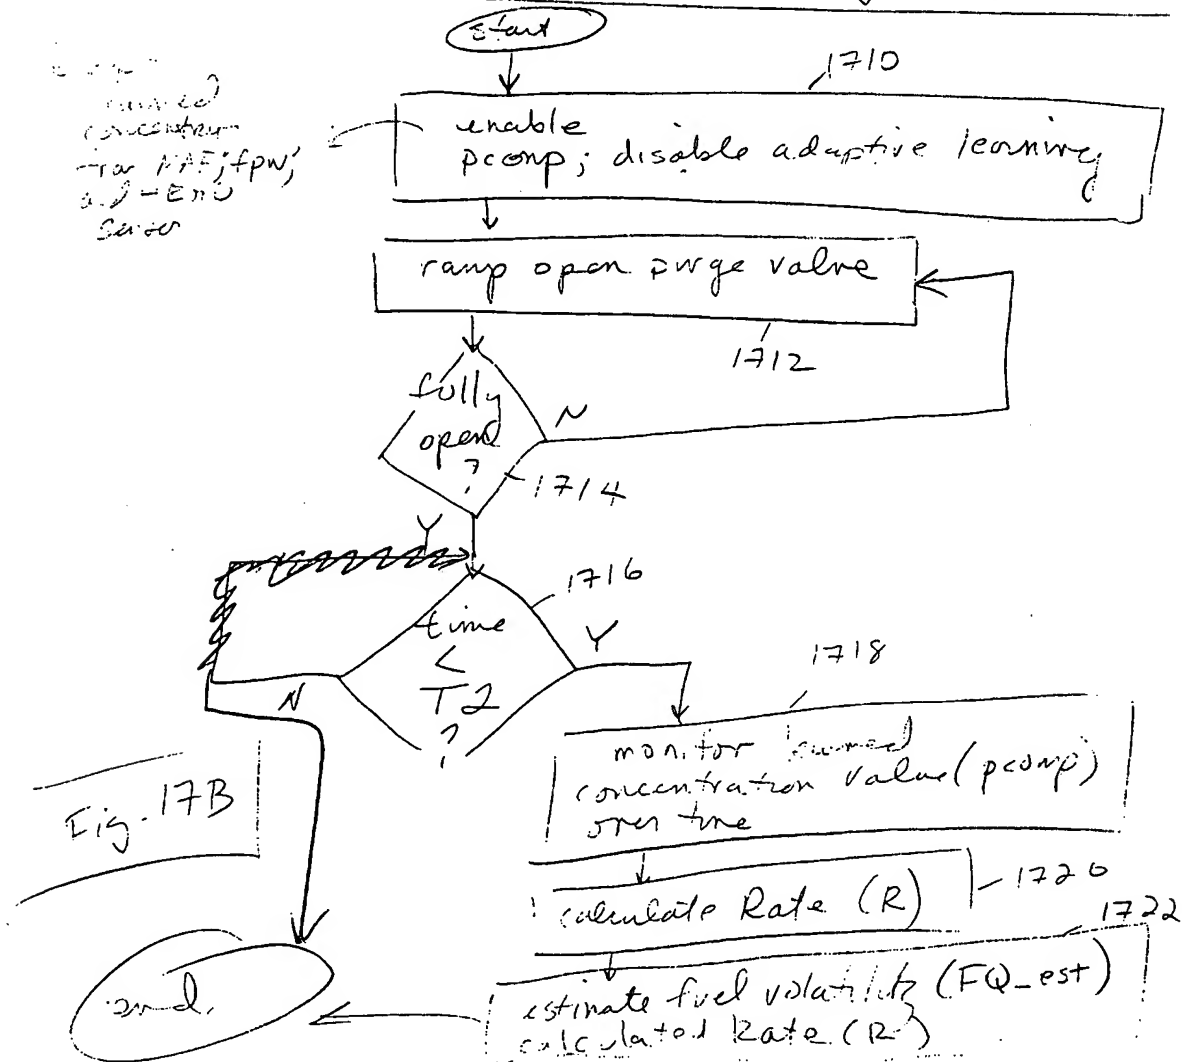 start
1710
learned
concentra-
tion MAF; fpw;
and - EGO
sensor
enable
pcomp; disable adaptive learning
ramp open purge valve
1712
fully
open
?
N
1714
Y
1716
time
<
T2
?
Y
N
1718
monitor learned
concentration value (pcomp)
over time
Fig. 17B
calculate Rate (R)
1720
1722
estimate fuel volatility (FQ_est)
calculated Rate (R)
end.